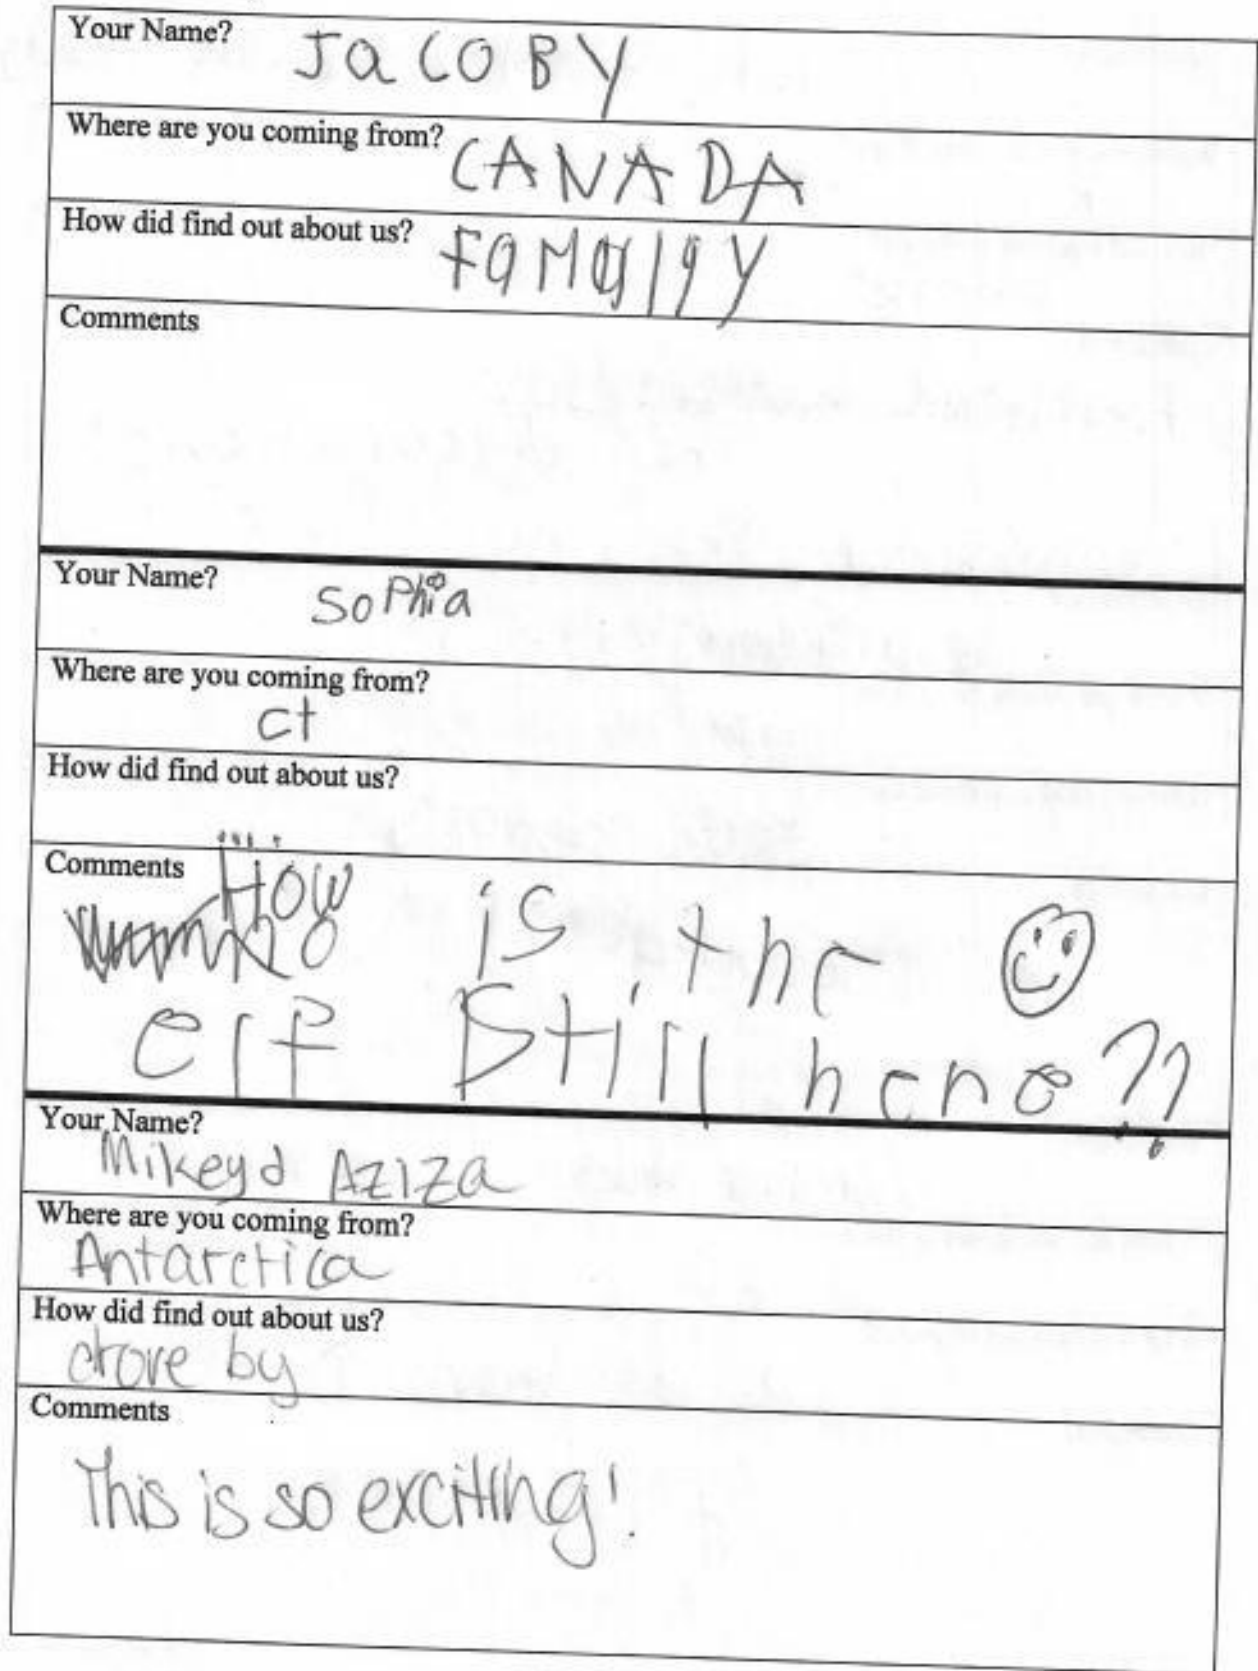 Your Name? JaCOBY
Where are you coming from? CANADA
How did find out about us?
Comments
Your Name? SoPhia
Where are you coming from?
ct
How did find out about us?
Comments How
is the
elf Still here??
Your Name?
Mikey & AZIZA
Where are you coming from?
Antarctica
How did find out about us?
drove by
Comments
This is so exciting!